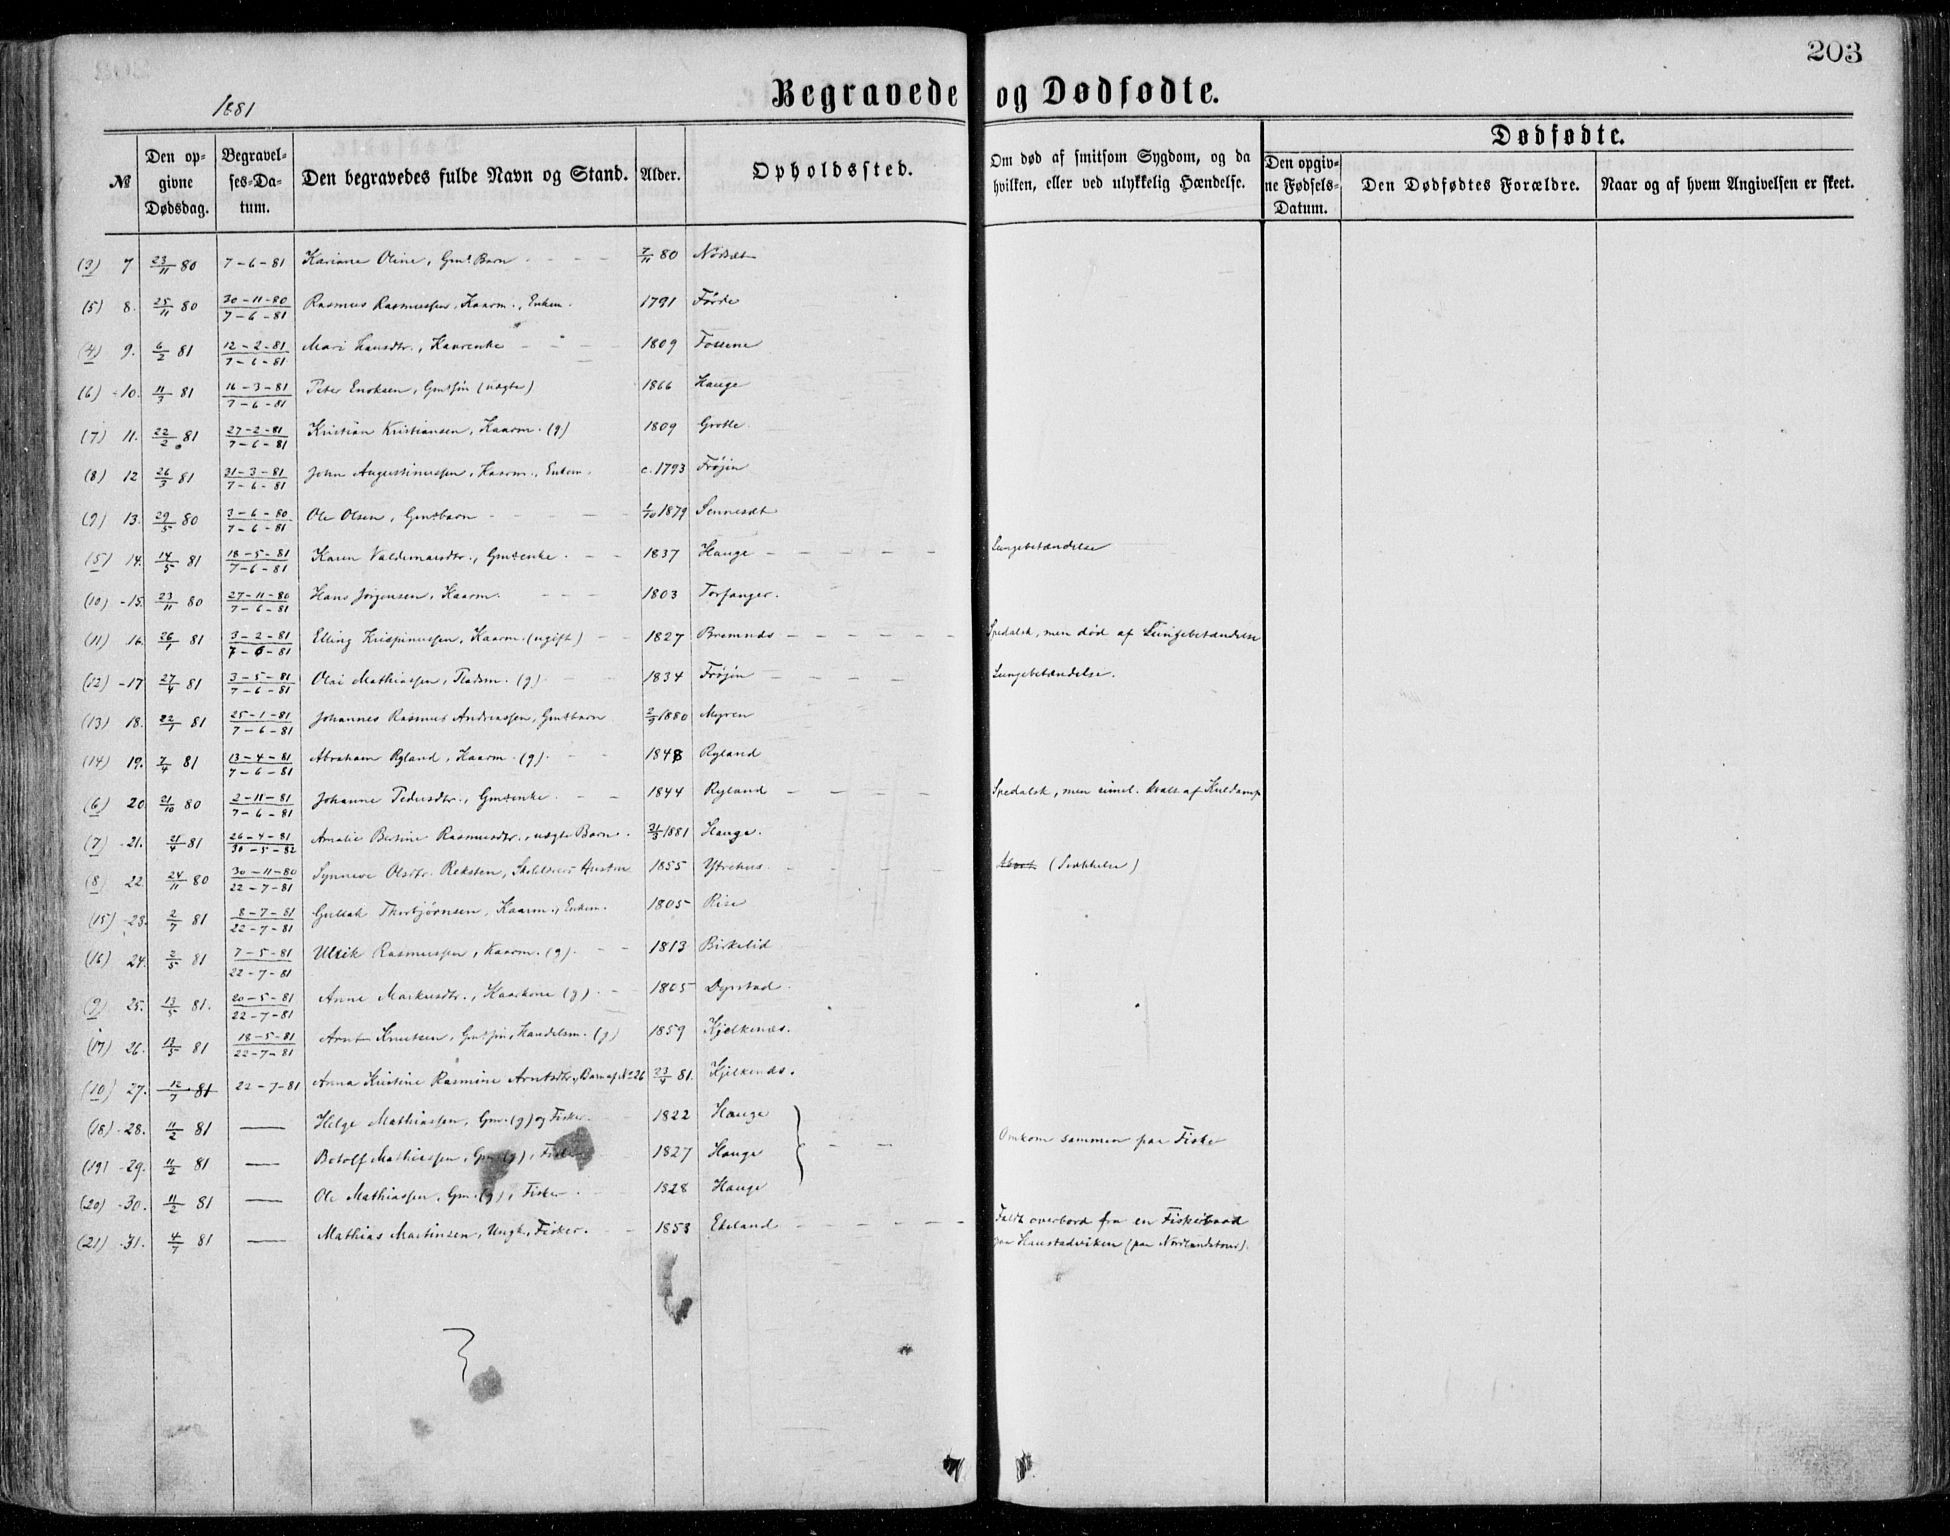 203
1881
Begravede og Dødfødte.
№
Den opgivne Dødsdag.
Begravelses-Datum.
Den begravedes fulde Navn og Stand.
Alder.
Opholdssted.
Om død af smitsom Sygdom, og da hvilken, eller ved ulykkelig Hændelse.
Dødfødte.
Den opgivne Fødsels-Datum.
Den Dødfødtes Forældre.
Naar og af hvem Angivelsen er skeet.
(3) 7 23/11 80 7-6-81 Kariane Oline, Gmds Barn 7/11 80 Nordset
(5) 8. 25/11 80 30-11-80 / 7-6-81 Rasmus Rasmussen, Kaarm., Enkem. 1791 Førde
(4) 9. 6/2 81 12-2-81 / 7-6-81 Mari Hansdtr., Kaarenke 1809 Fossene
(6) 10. 11/3 81 16-3-81 / 7-6-81 Peter Enoksen, Gmdssøn (uægte) 1866 Hauge
(7) 11. 22/2 81 27-2-81 / 7-6-81 Kristian Kristiansen, Kaarm. (g) 1809 Grotle
(8) 12 26/3 81 31-3-81 / 7-6-81 John Augustinussen, Kaarm., Enkem. c. 1793 Frøjen
(9) 13. 29/5 80 3-6-80 / 7-6-81 Ole Olsen, Gmdsbarn 1/10 1879 Sennesæt
(5) 14. 14/5 81 18-5-81 / 7-6-81 Karen Valdemarsdtr., Gmdsenke 1837 Hauge Lungebetændelse
(10) 15. 23/11 80 27-11-80 / 7-6-81 Hans Jørgensen, Kaarm. 1803 Torfanger
(11) 16. 26/1 81 3-2-81 / 7-6-81 Elling Krispinussen, Kaarm. (ugift) 1827 Bremnæs Spedalsk, men død af Lungebetændelse
(12) 17 27/4 81 3-5-81 / 7-6-81 Olai Mathiassen, Pladsm. (g) 1834 Frøjen Lungebetændelse.
(13) 18. 22/1 81 25-1-81 / 7-6-81 Johannes Rasmus Andreassen, Gmdsbarn 2/9 1880 Myren
(14) 19. 7/4 81 13-4-81 / 7-6-81 Abraham Ryland, Kaarm. (g). 1848 Ryland
(6) 20 21/10 80 2-11-81 / 7-6-81 Johanne Pedersdtr., Gmdsenke 1844 Ryland Spedalsk, men kvalt af Kuldamp
(7) 21. 21/4 81 26-4-81 / 30-5-82 Amalie Bertine Rasmusdtr., uægte Barn. 31/3 1881 Hauge.
(8) 22. 24/11 80 30-11-80 / 22-7-81 Synneve Olsdtr. Reksten, Hustru 1855 Ytrehus
(15) 23. 2/7 81 8-7-81 / 22-7-81 Gullak Thorbjørnsen, Kaarm., Enkem. 1805 Rise
(16) 24. 2/5 81 7-5-81 / 22-7-81 Ulrik Rasmussen, Kaarm. (g). 1813 Birkelid
(9) 25. 13/5 81. 20-5-81 / 22-7-81 Anne Markusdtr., Kaarkone (g). 1805 Dyrstad
(17) 26. 13/5 81 18-5-81 / 22-7-81 Arnt Knutsen, Gmdssøn, Handelsm. (g) 1859 Kjelkenæs.
(10) 27. 12/7 81 22-7-81 Anna Kristine Rasmine Arntsdtr., Barn af № 26 23/4 81. Kjelkenæs.
(18) 28. 11/2 81 — Helge Mathiassen, Gm. (g) og Fisker 1822 Hauge
Omkom sammen paa Fiske
(19) 29. 11/2 81 — Botolf Mathiassen, Gm. (g), Fisker 1827 Hauge
(20) 30. 11/2 81 — Ole Mathiassen, Gm. (g), Fisker 1828 Hauge
(21) 31. 4/7 81 — Mathias Martinsen, Ungk., Fisker. 1853 Ekeland Faldt overbord fra en Fiskebaad
paa Haustadviken (paa Nordlandstour).